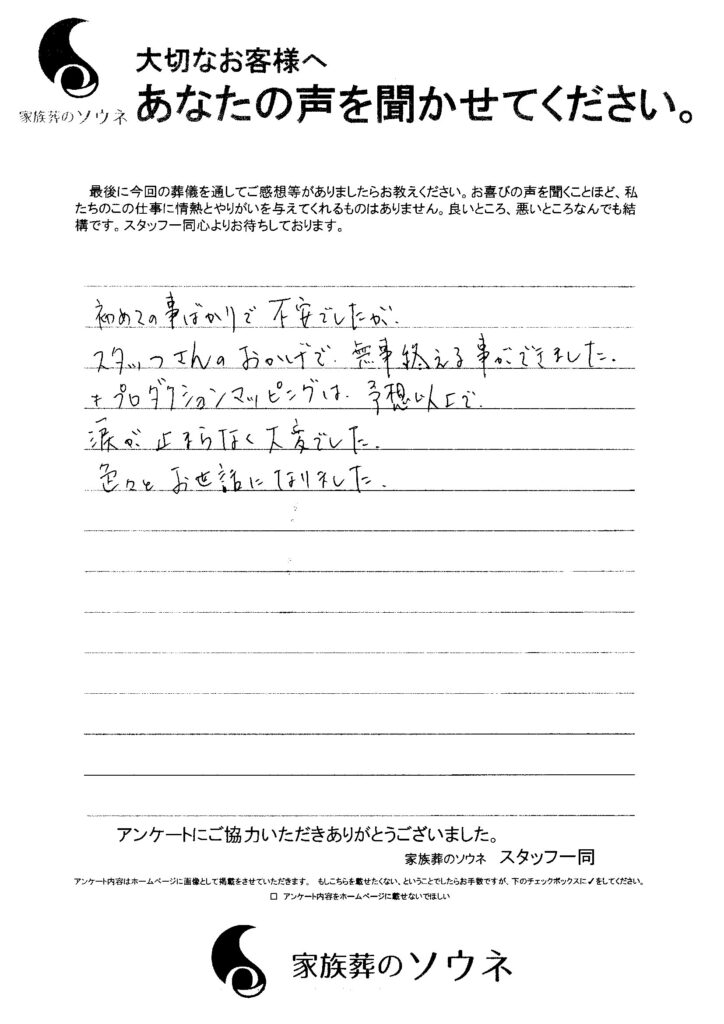 大切なお客様へ
家族葬のソウネ
あなたの声を聞かせてください。
最後に今回の葬儀を通してご感想等がありましたらお教えください。お喜びの声を聞くことほど、私
たちのこの仕事に情熱とやりがいを与えてくれるものはありません。良いところ、悪いところなんでも結
構です。スタッフ一同心よりお待ちしております。
初めての事ばかりで 不安でしたが、
スタッフさんの おかげで、無事終える事ができました。
プロダクションマッピングは、予想以上で、
涙が 止まらなく 大変でした。
色々と お世話に なりました。
アンケートにご協力いただきありがとうございました。
家族葬のソウネ スタッフ一同
アンケート内容はホームページに画像として掲載をさせていただきます。 もしこちらを載せたくない、ということでしたらお手数ですが、下のチェックボックスに✓をしてください。
□ アンケート内容をホームページに載せないでほしい
家族葬のソウネ